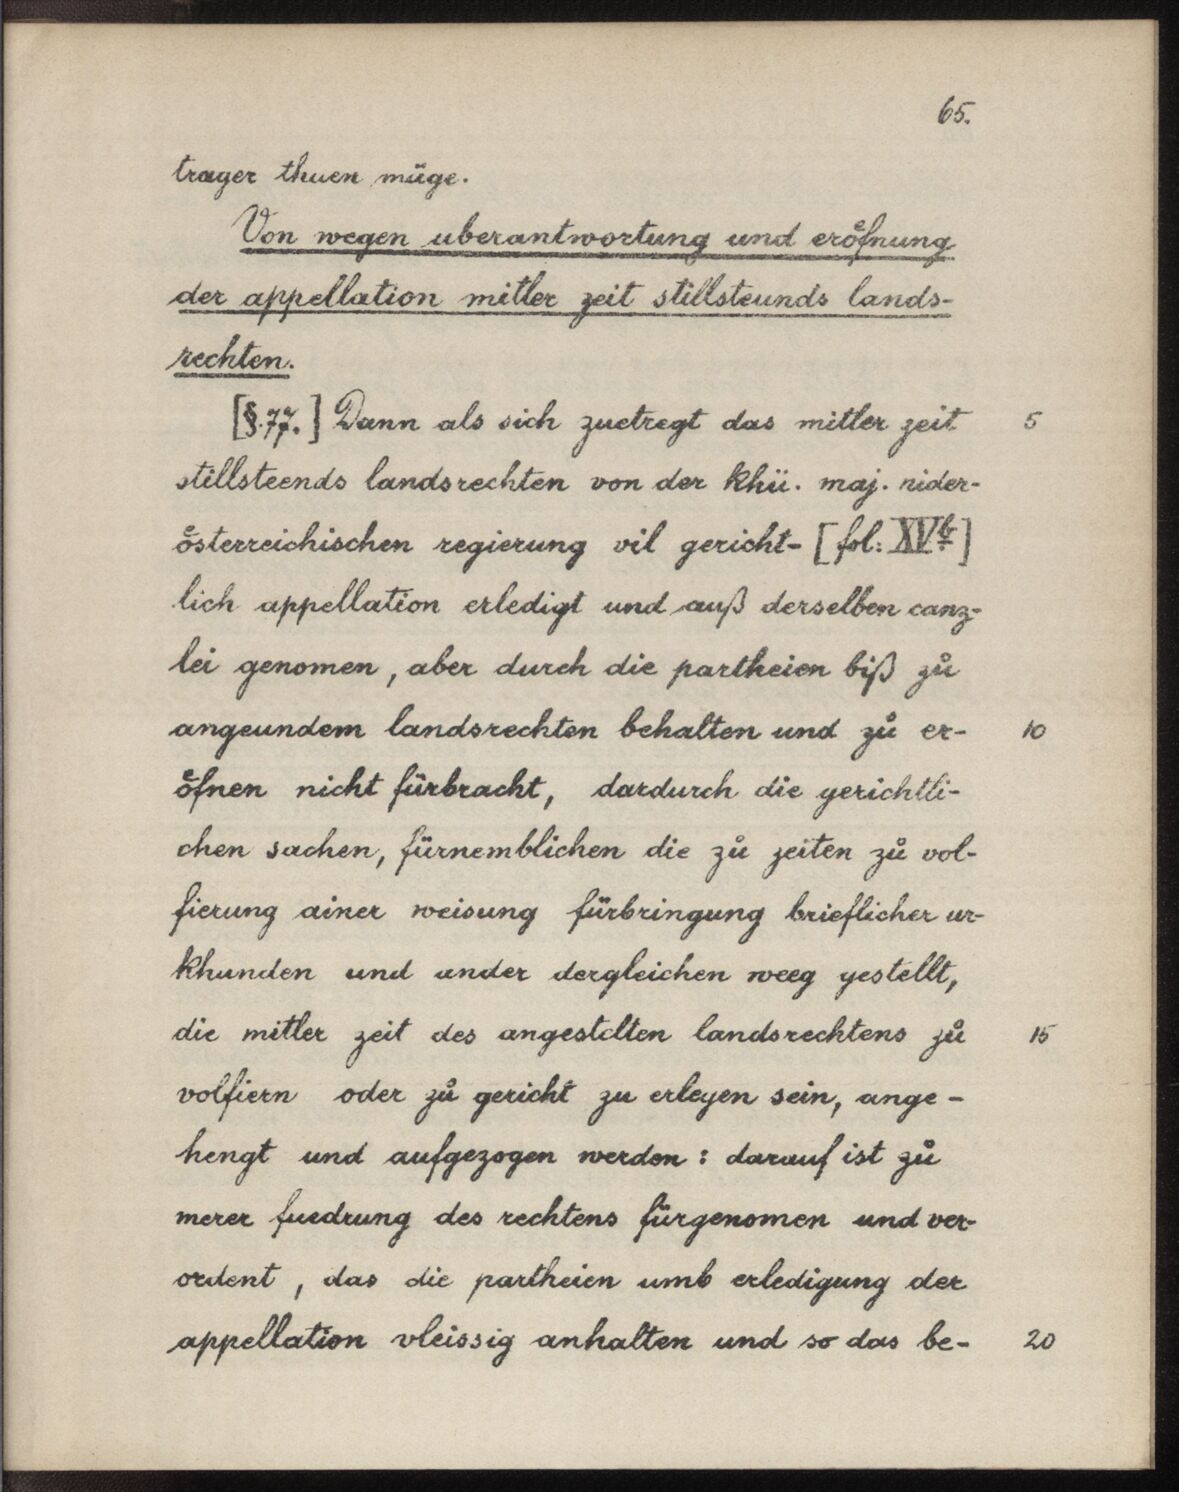 65.
trager thuen müge.
Von wegen uberantwortung und eroͤfnung
der appellation mitler zeit stillsteunds lands-
rechten.
[§.77.] Dann als sich zuetregt das mitler zeit 5
stillsteends landsrechten von der khü. maj. nider-
oͤsterreichischen regierung vil gericht- [fol: XVb]
lich appellation erledigt und auß derselben canz-
lei genomen, aber durch die partheien biß zů
angeundem landsrechten behalten und zů er- 10
oͤfnen nicht fürbracht, dardurch die gerichtli-
chen sachen, fürnemblichen die zů zeiten zů vol-
fierung ainer weisung fürbringung brieflicher ur-
khunden und ander dergleichen weeg gestellt,
die mitler zeit des angestelten landsrechtens zů 15
volfiern oder zů gericht zu erlegen sein, ange-
hengt und aufgezogen werden: darauf ist zů
merer fuedrung des rechtens fürgenomen und ver-
ordent, das die partheien umb erledigung der
appellation vleissig anhalten und so das be- 20